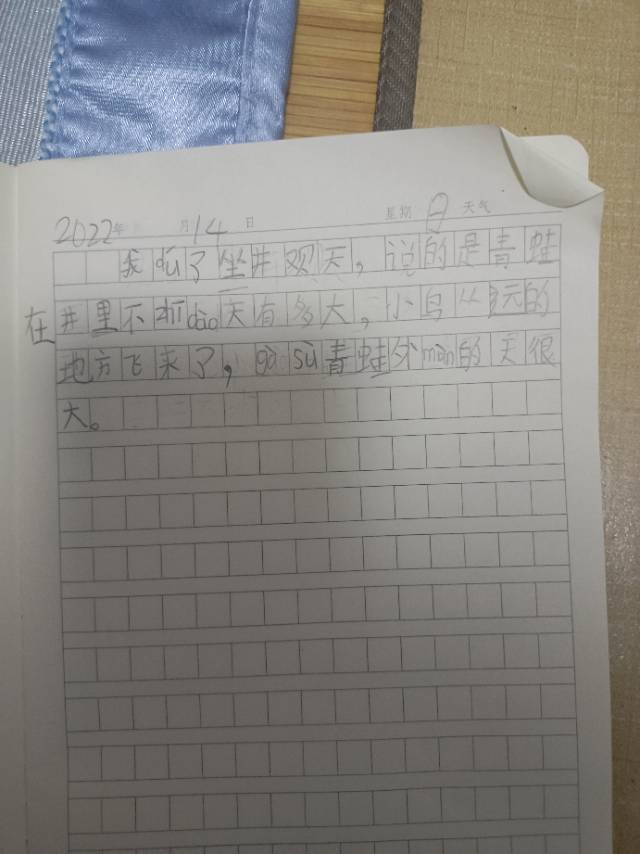 2022年 月14日 星期日 天气
我dú了坐井观天,说的是青蛙
在井里不zhīdào天有多大,小鸟从远的
地方飞来了,gàosù青蛙外miàn的天很
大。